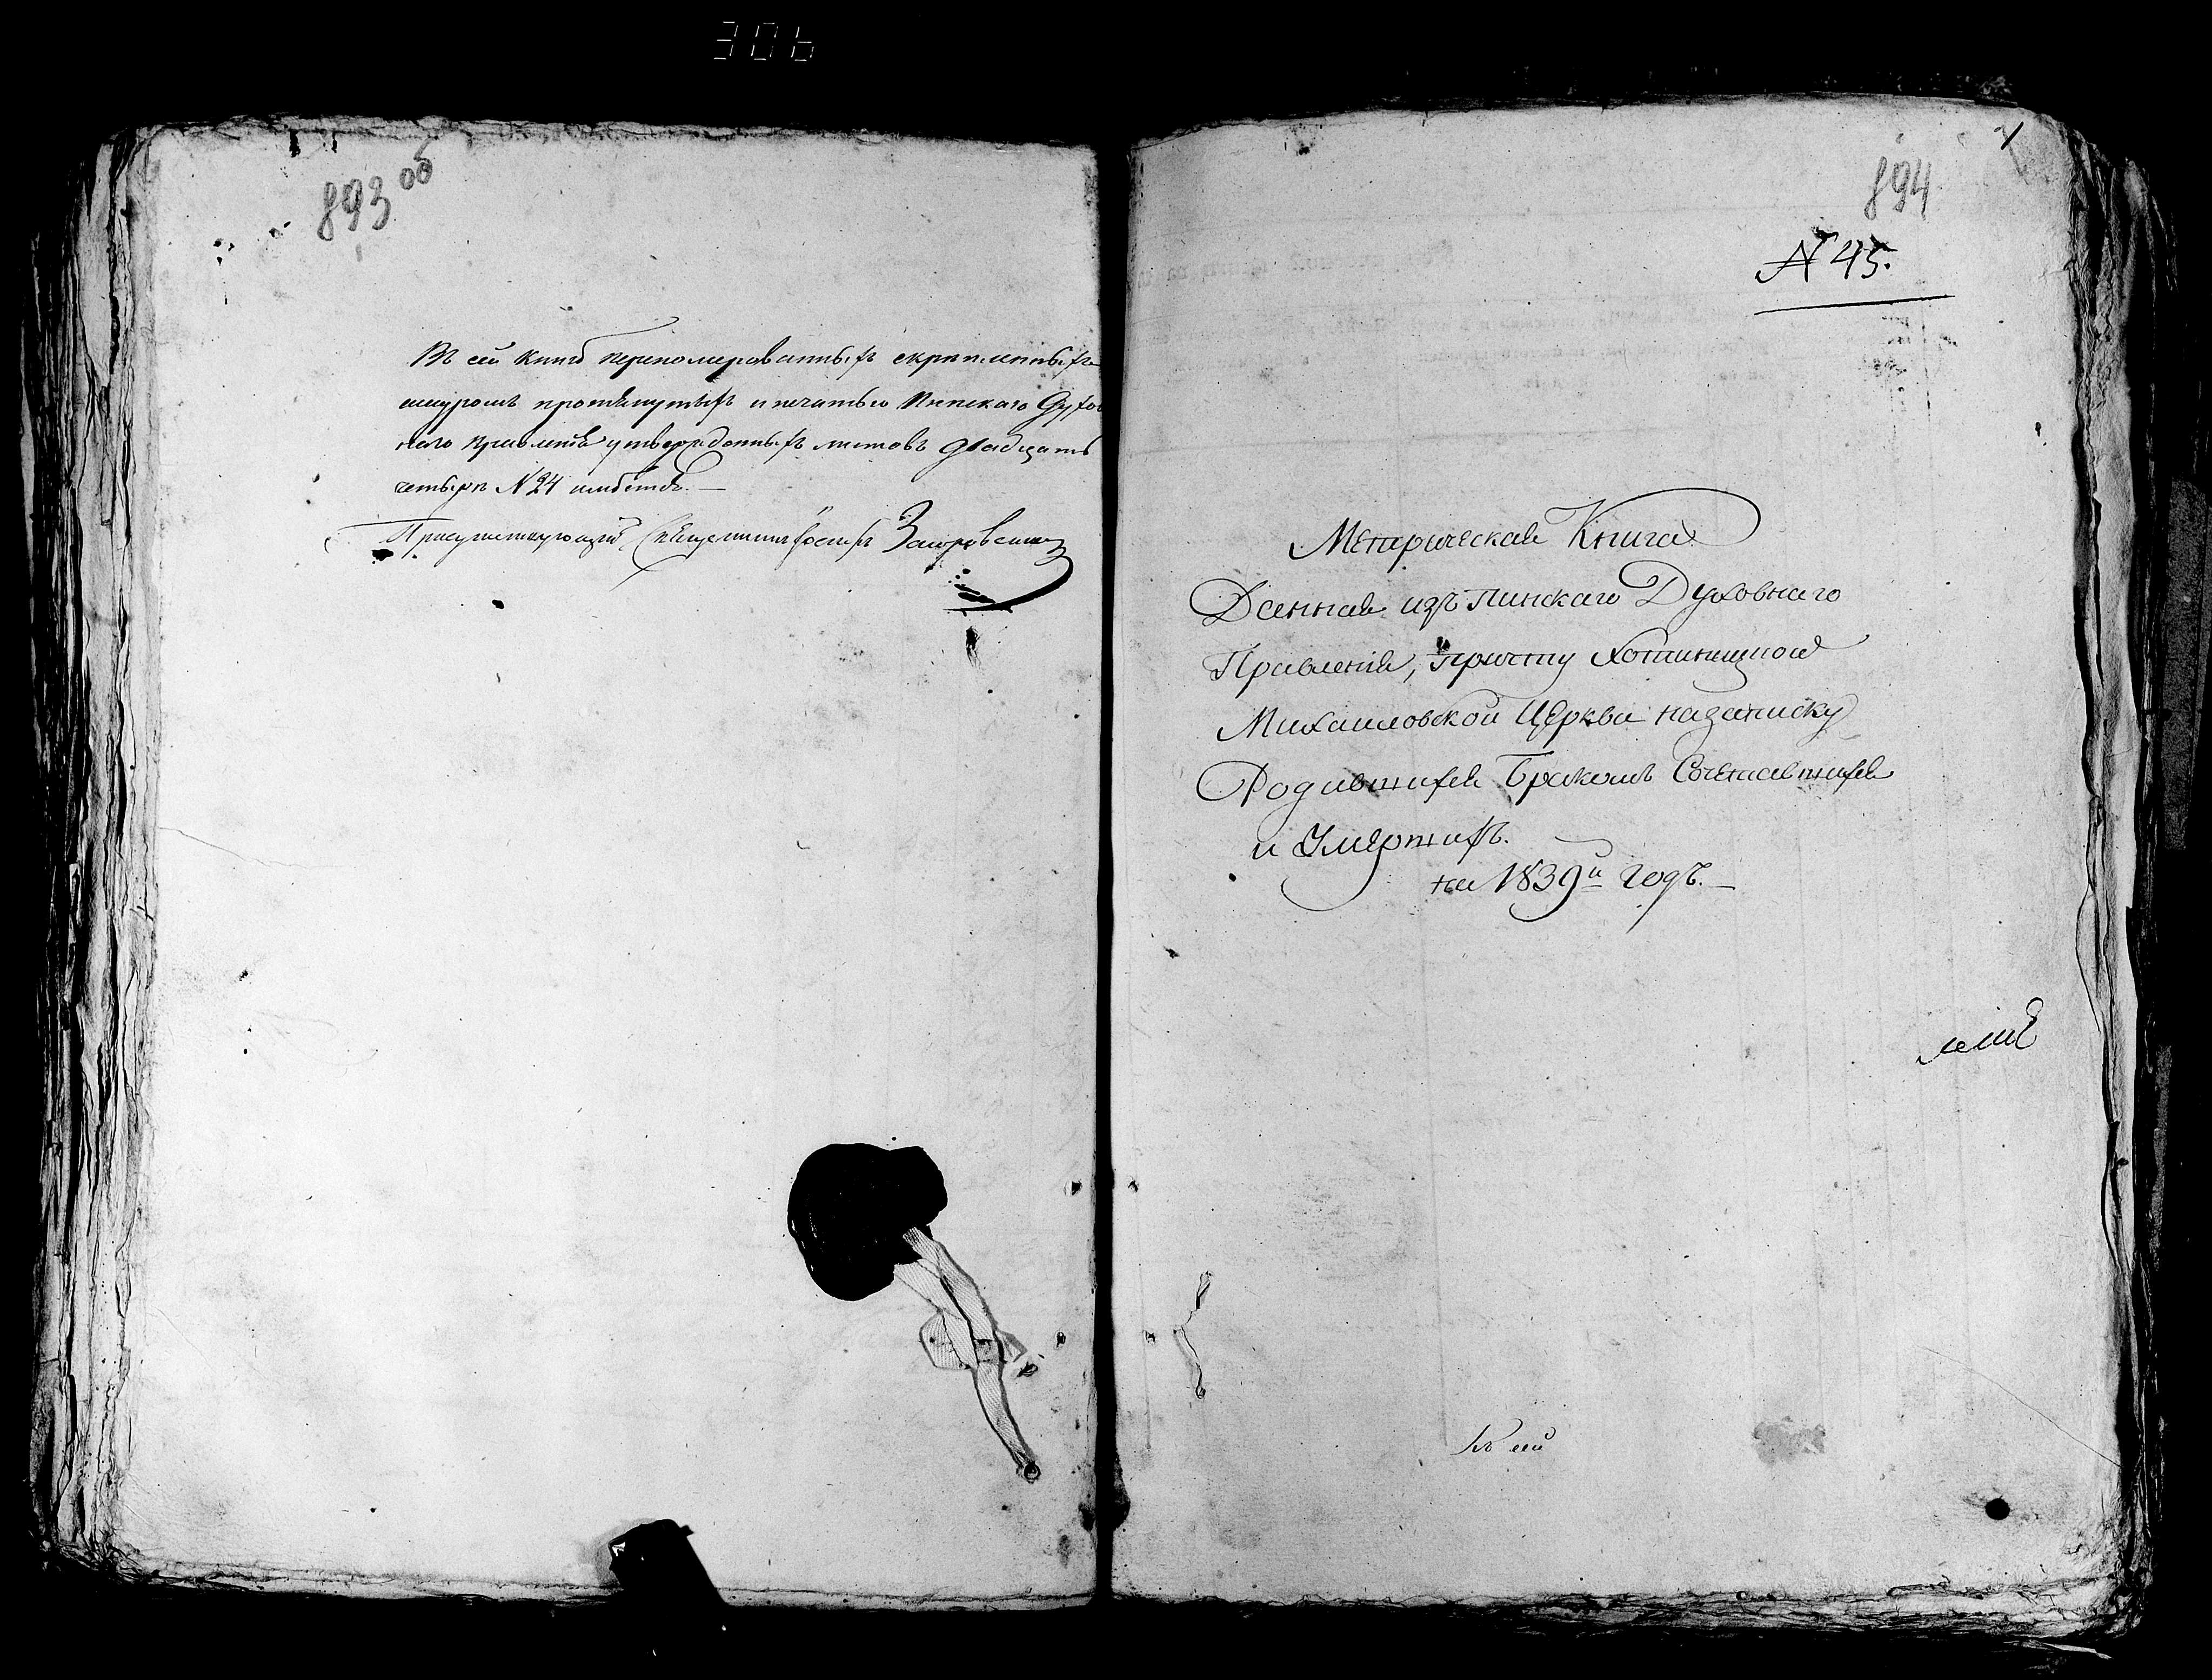 306
893 об
Въ сей книгѣ переномерованныхъ скрѣпленныхъ
шнуромъ протянутыхъ и печатью Пинскаго Духов
наго правленія утвержденныхъ листовъ двадцать
четыре N 24 имѣется. —
Присутствующій Священникъ Іосифъ
1
894
N 45.
Метрическая Книга
Данная изъ Пинскаго Духовнаго
Правленія, причту Хотиницкой
Михаиловской Церкви на записку
Родившихся Бракомъ Сочетавшихся
и Умершихъ.
на 1839й годъ. —
Къ сей